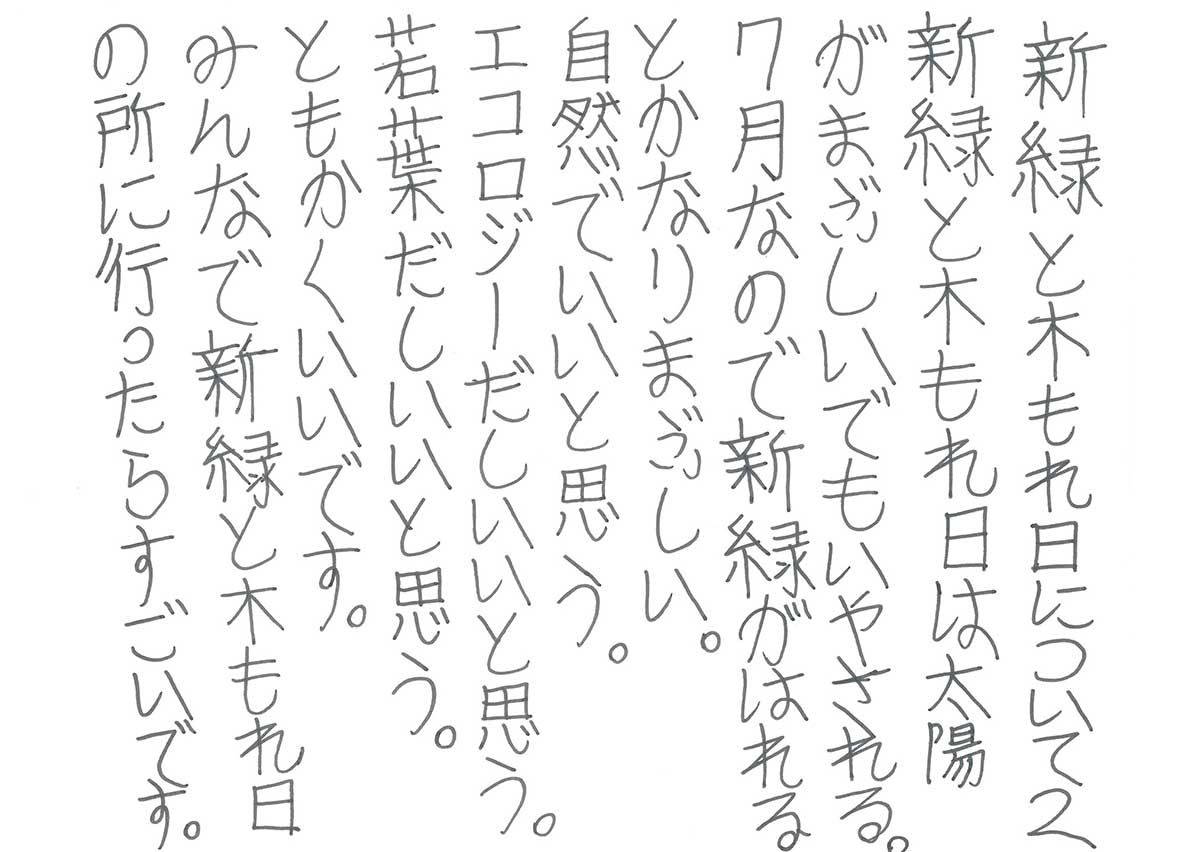 新緑と木もれ日について2
新緑と木もれ日は太陽
がまぶしいでもいやされる。
7月なので新緑がはれる
とかなりまぶしい。
自然でいいと思う。
エコロジーだしいいと思う。
若葉だしいいと思う。
ともかくいいです。
みんなで新緑と木もれ日
の所に行ったらすごいです。